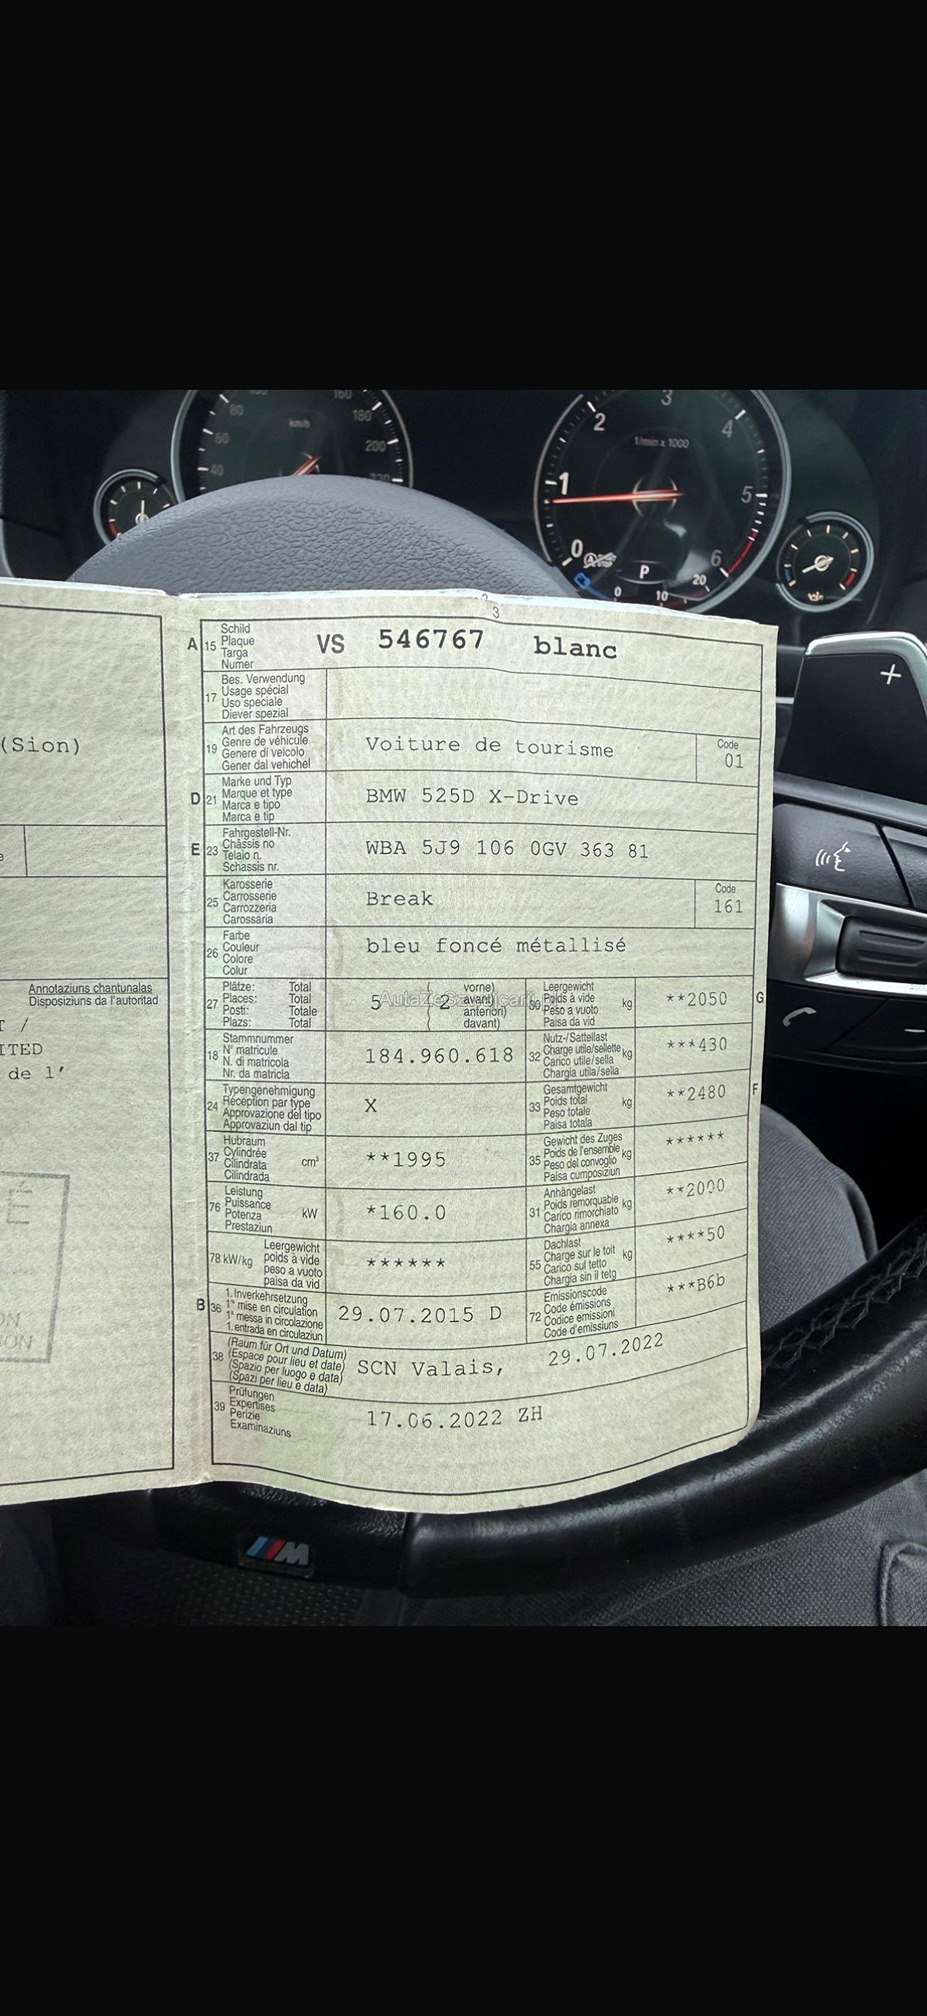 80
60
40
km/h
160
180
200
220
1
2
3
4
5
6
0
1/min x 1000
P
0
10
20
3
(Sion)
Annotaziuns chantunalas
Disposiziuns da l'autoritad
T /
ITED
de l'
É
ON
SON
A 15 Schild
Plaque
Targa
Numer
VS 546767 blanc
17 Bes. Verwendung
Usage spécial
Uso speciale
Diever spezial
19 Art des Fahrzeugs
Genre de véhicule
Genere di veicolo
Gener dal vehichel
Voiture de tourisme
Code
01
D 21 Marke und Typ
Marque et type
Marca e tipo
Marca e tip
BMW 525D X-Drive
E 23 Fahrgestell-Nr.
Châssis no
Telaio n.
Schassis nr.
WBA 5J9 106 0GV 363 81
25 Karosserie
Carrosserie
Carrozzeria
Carossaria
Break
Code
161
26 Farbe
Couleur
Colore
Colur
bleu foncé métallisé
27 Plätze: Total
Places: Total
Posti: Totale
Plazs: Total
5
2
vorne)
avant)
anteriori)
davant)
30 Leergewicht
Poids à vide
Peso a vuoto
Paisa da vid
kg
**2050
G
18 Stammnummer
N° matricule
N. di matricola
Nr. da matricla
184.960.618
32 Nutz-/Sattellast
Charge utile/sellette
Carico utile/sella
Chargia utila/sella
kg
***430
24 Typengenehmigung
Réception par type
Approvazione del tipo
Approvaziun dal tip
X
33 Gesamtgewicht
Poids total
Peso totale
Paisa totala
kg
**2480
F
37 Hubraum
Cylindrée
Cilindrata
Cilindrada
cm³
**1995
35 Gewicht des Zuges
Poids de l'ensemble
Peso del convoglio
Paisa cumposiziun
kg
******
76 Leistung
Puissance
Potenza
Prestaziun
kW
*160.0
31 Anhängelast
Poids remorquable
Carico rimorchiato
Chargia annexa
kg
**2000
78 kW/kg
Leergewicht
poids à vide
peso a vuoto
paisa da vid
******
55 Dachlast
Charge sur le toit
Carico sul tetto
Chargia sin il tetg
kg
****50
B 36 1. Inverkehrsetzung
1re mise en circulation
1a messa in circolazione
1. entrada en circulaziun
29.07.2015 D
72 Emissionscode
Code émissions
Codice emissioni
Code d'emissiuns
***B6b
38 (Raum für Ort und Datum)
(Espace pour lieu et date)
(Spazio per luogo e data)
(Spazi per lieu e data)
SCN Valais, 29.07.2022
39 Prüfungen
Expertises
Perizie
Examinaziuns
17.06.2022 ZH
M